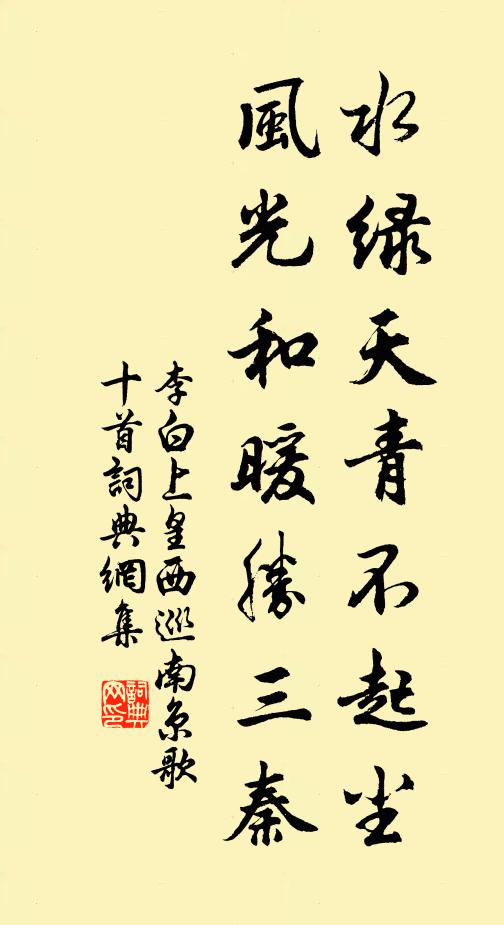 水绿天青不起尘
風光和暖勝三秦
李白上皇西巡南京歌
十首詞典網集
詞典
网印